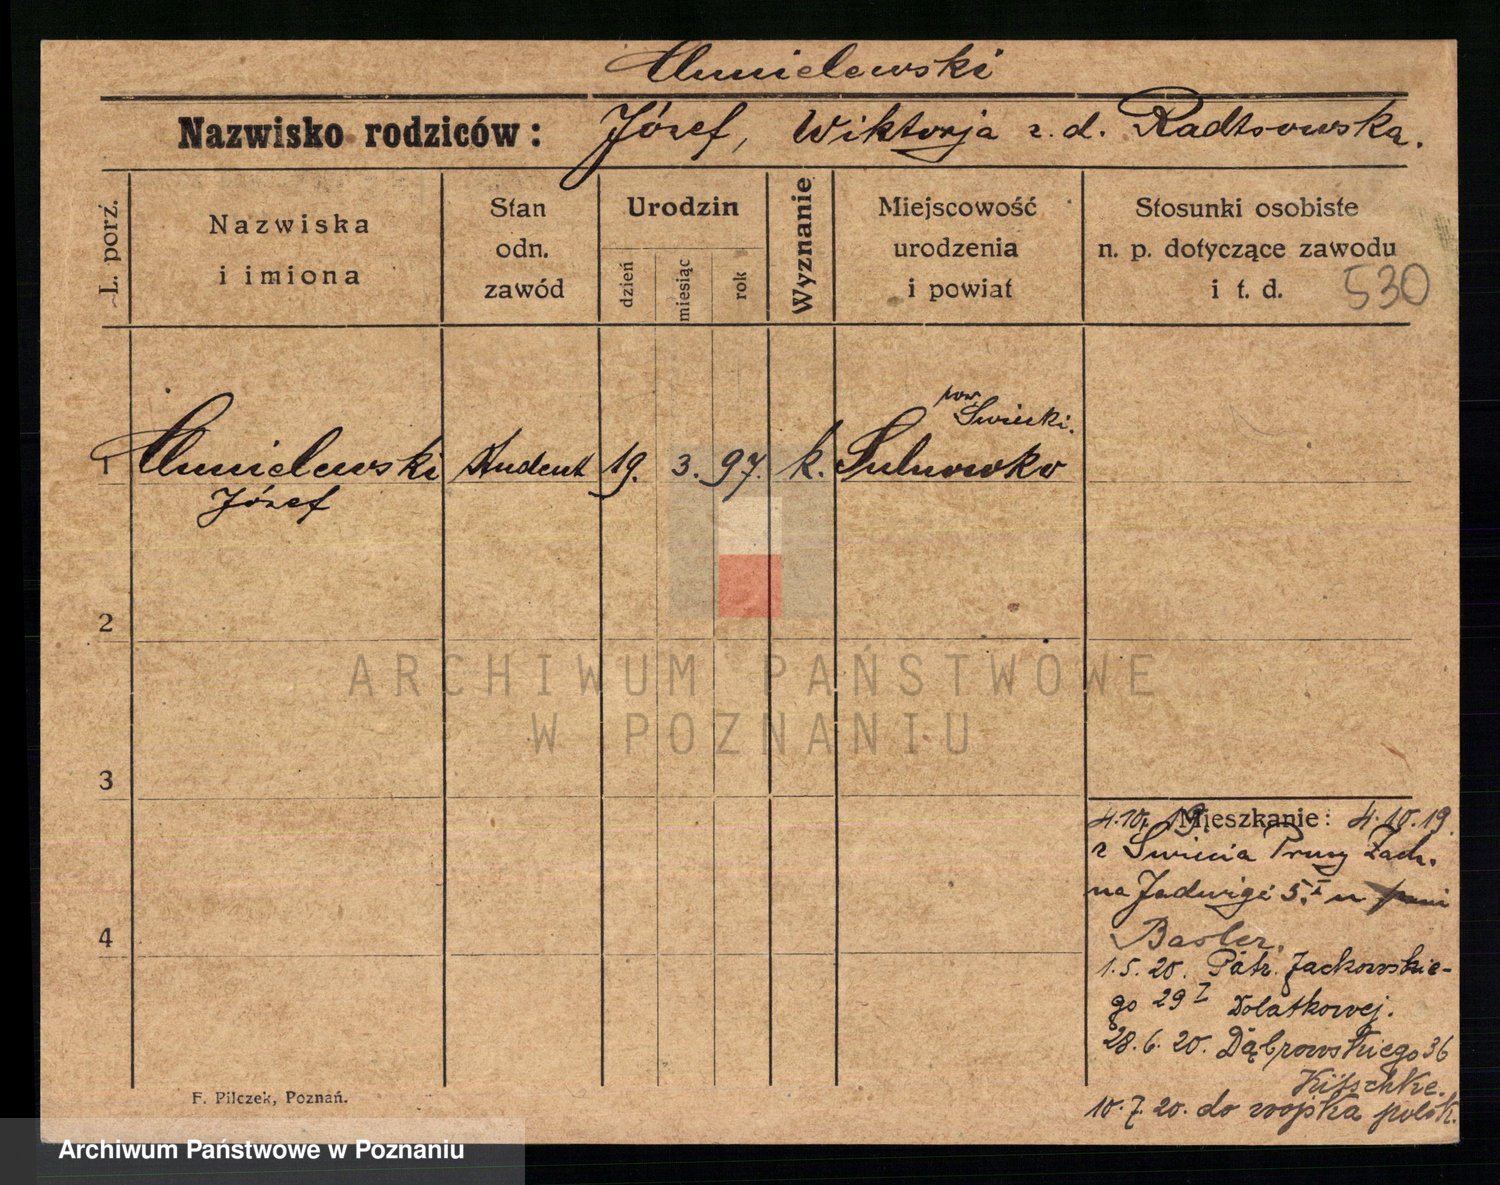 Chmielewski
Nazwisko rodziców: Józef, Wiktorja z. d. Radtsowska.
L. porz.
Nazwiska
i imiona
Stan
odn.
zawód
Urodzin
dzień
miesiąc
rok
Wyznanie
Miejscowość
urodzenia
i powiat
Stosunki osobiste
n. p. dotyczące zawodu
i t. d.
530
pow. Świecki.
1 Chmielewski Student 19. 3. 97. k. Sulnowko
Józef
2
3
4
ARCHIWUM PAŃSTWOWE
W POZNANIU
Mieszkanie:
4.10.19. 4.10.19.
z Świecia Prusy Zach.
na Jadwigi 5.I u
Basler.
1.5.20. Patr. Jackowskie-
go 29 I Dolatkowej.
28.6.20. Dąbrowskiego 36
Kitschke.
10.7.20. do wojska polsk.
F. Pilczek, Poznań.
Archiwum Państwowe w Poznaniu